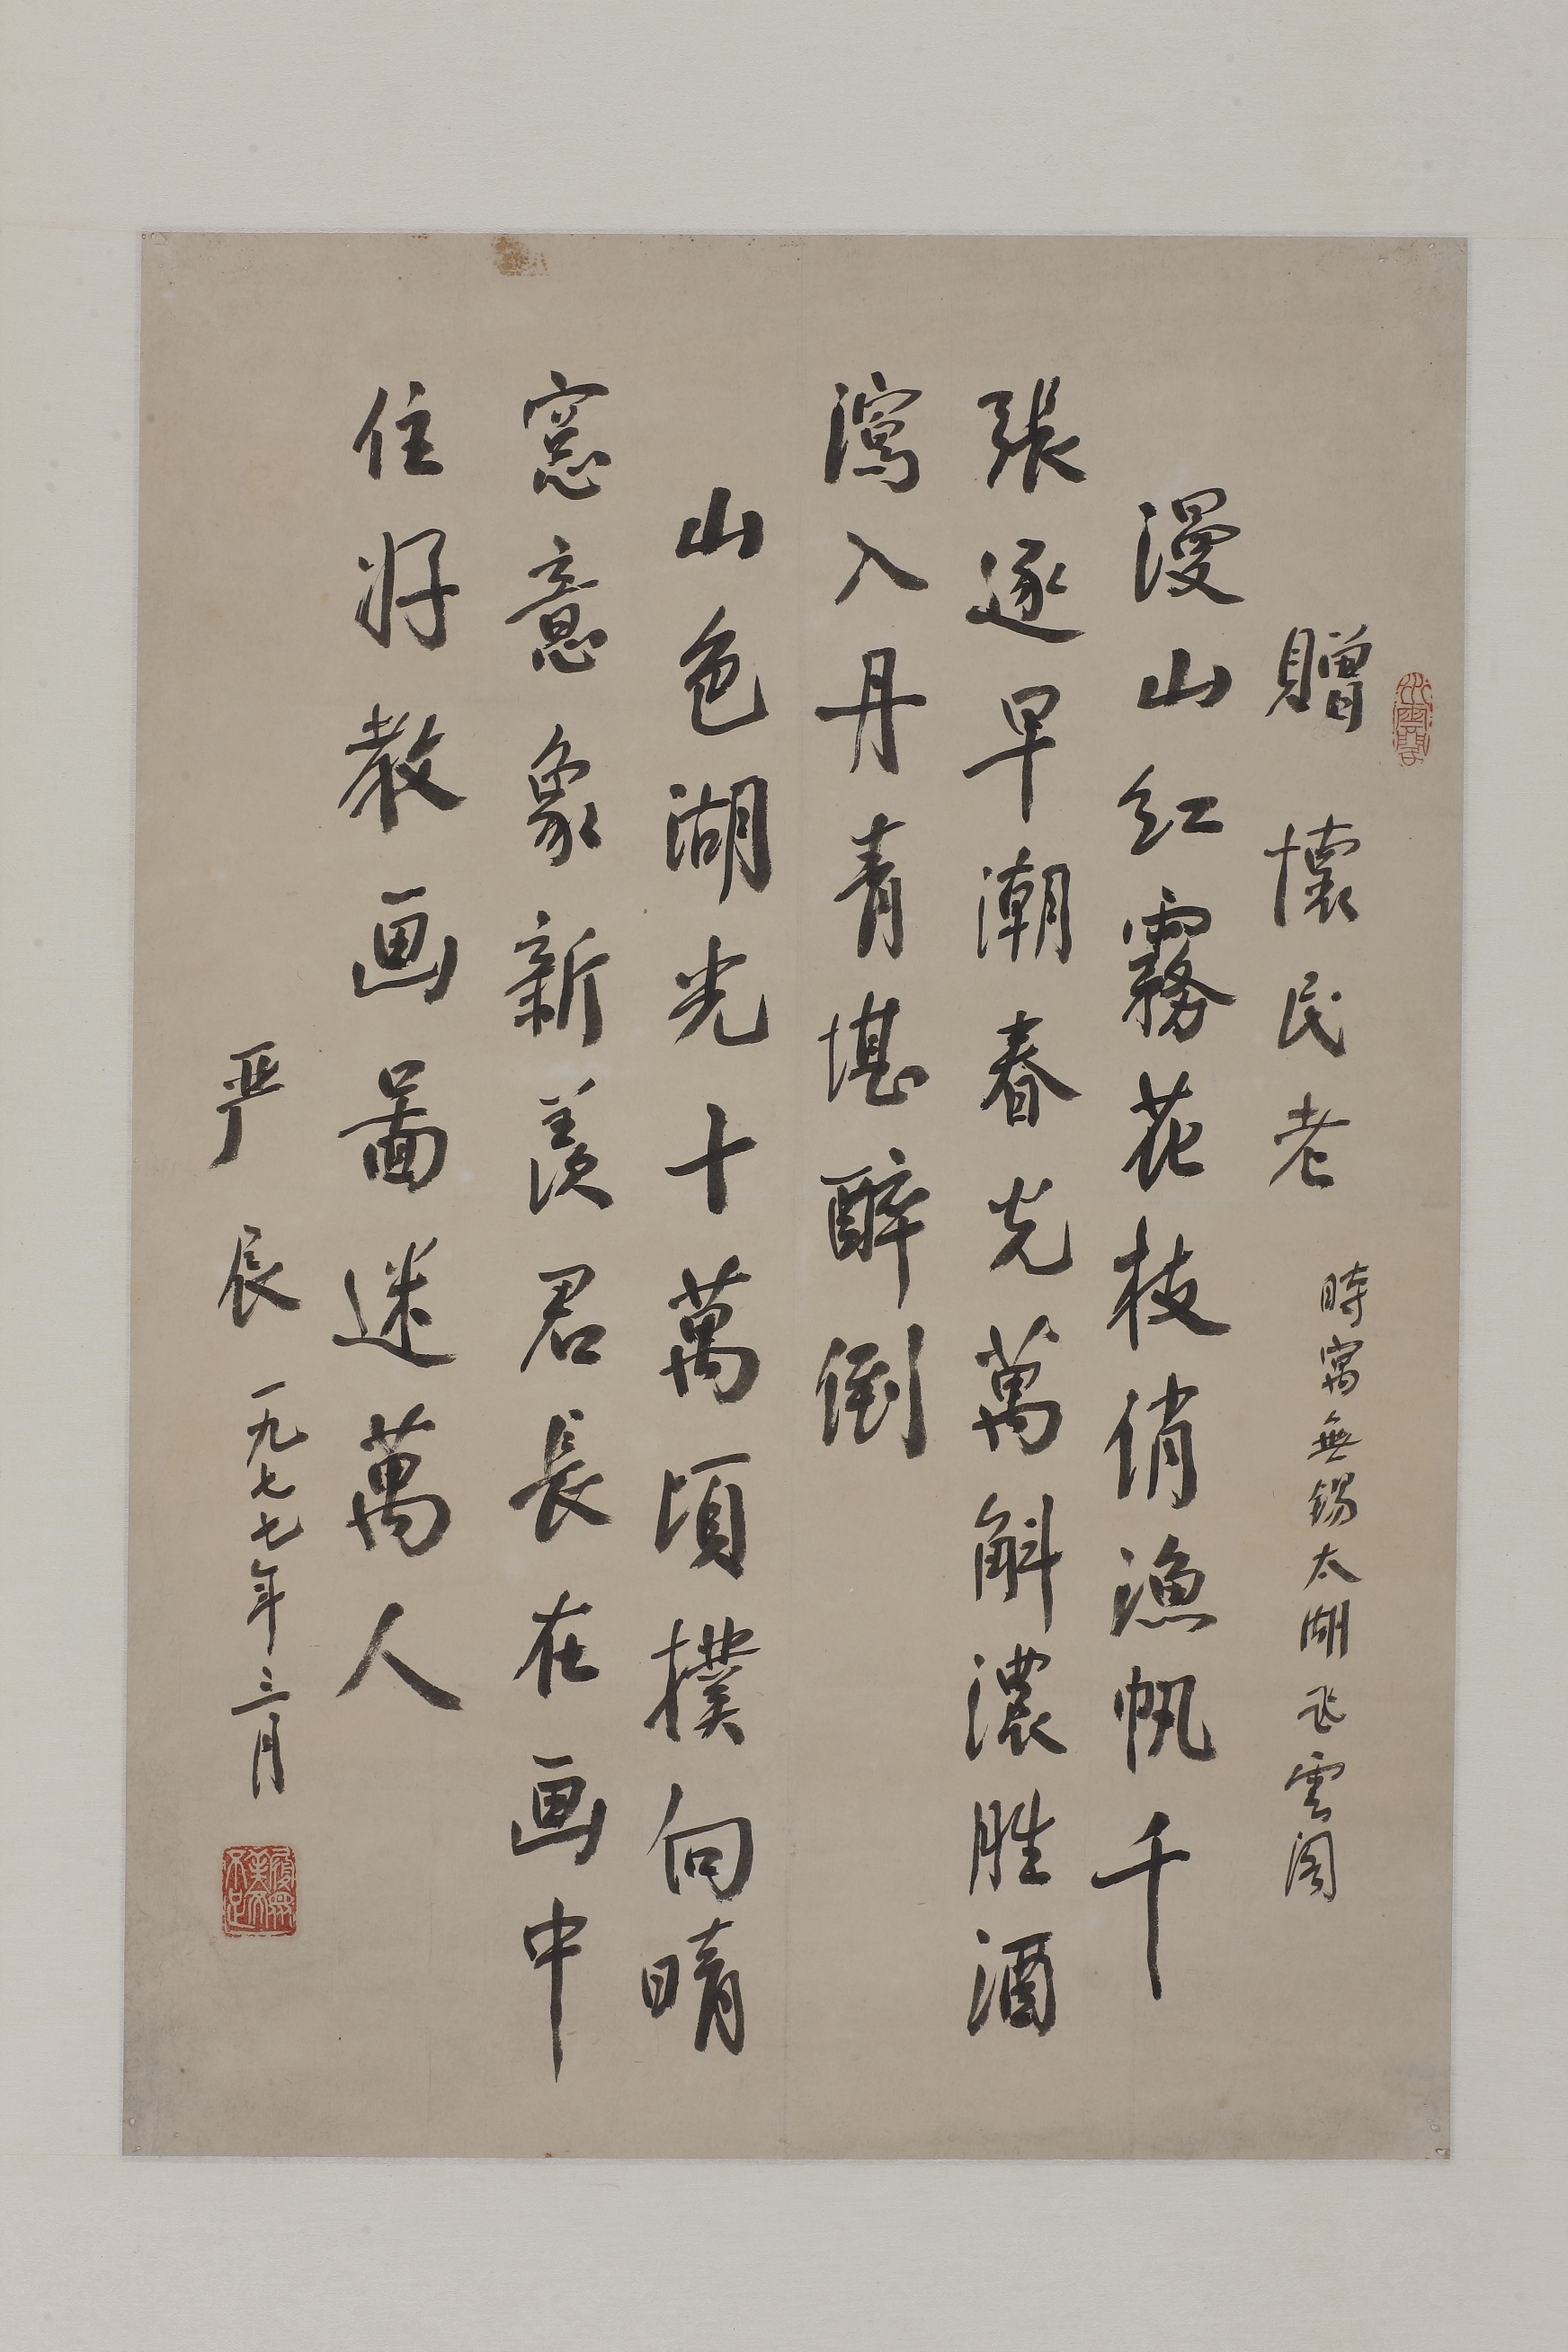 贈 懷民老 時寓無錫太湖飛雲閣
漫山紅霧花枝俏漁帆千
張逐早潮春光萬斛濃勝酒
瀉入丹青堪醉倒
山色湖光十萬頃撲向晴
窓意象新羨君長在画中
住好教画啚迷萬人
严辰 一九七七年三月